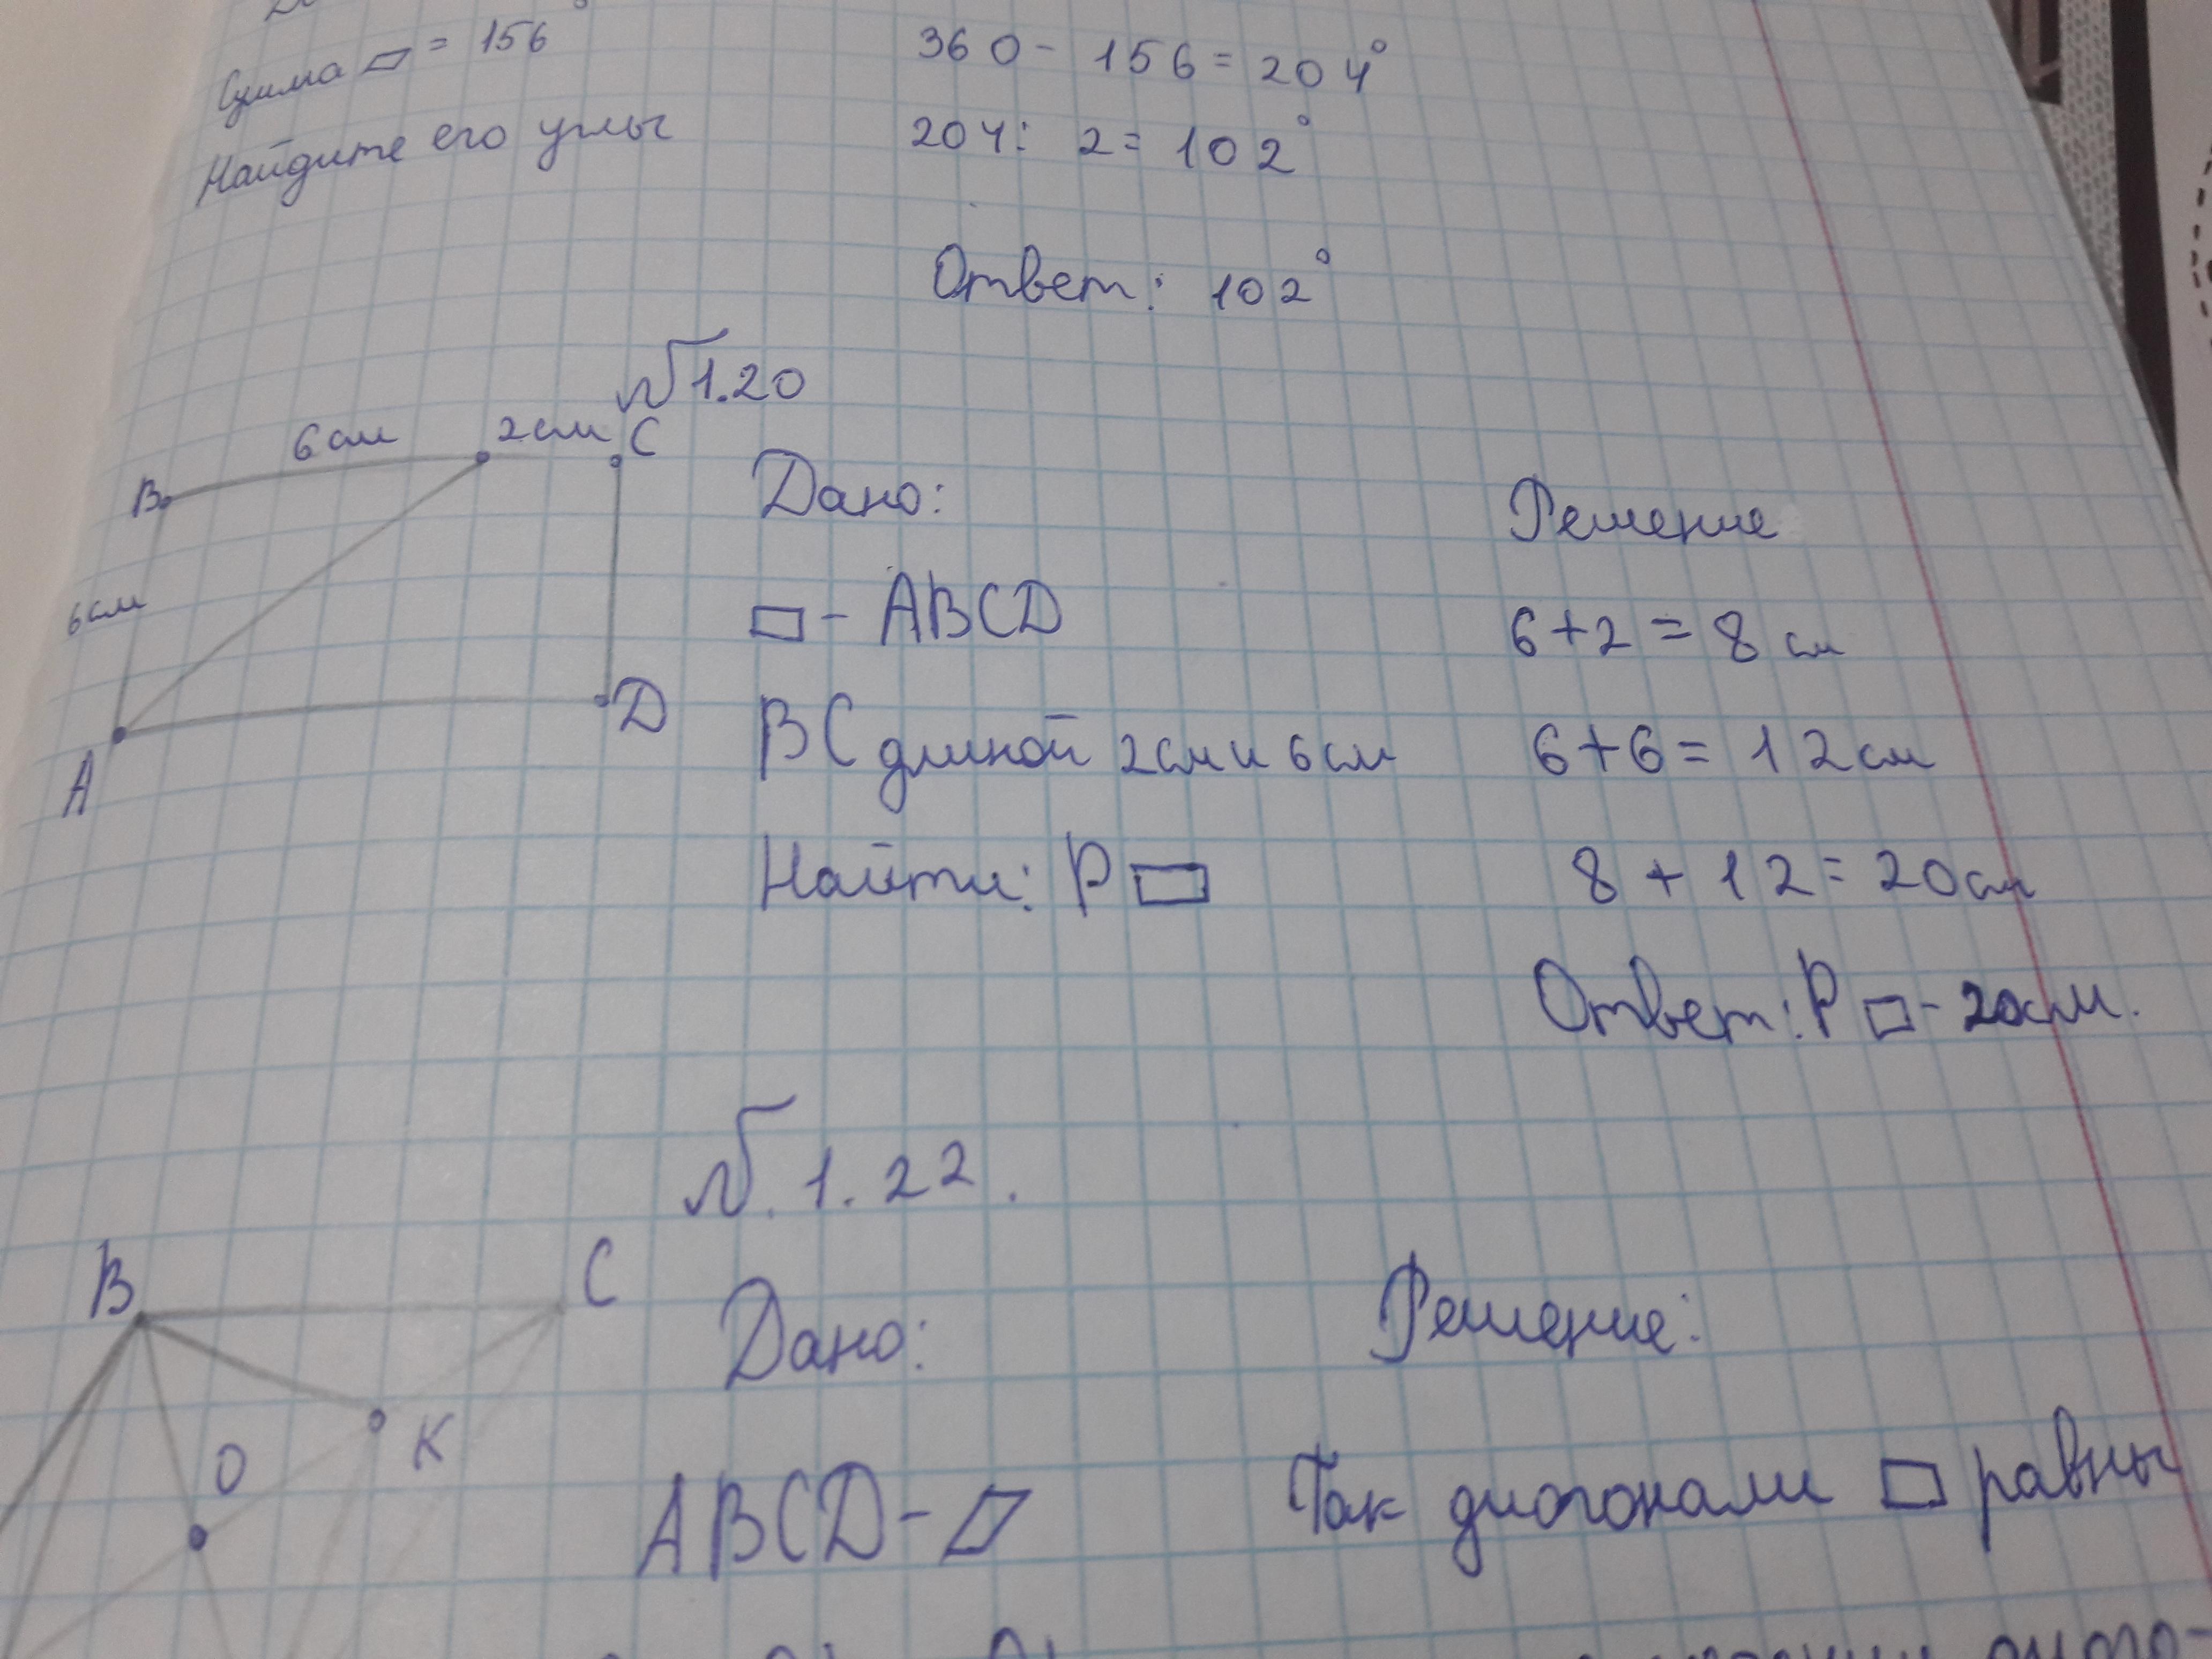 Сумма ▱ = 156°
Найдите его углы
360 - 156 = 204°
204 : 2 = 102°
Ответ: 102°
№1.20
6см 2см C
B
6см
A
D
Дано:
▭ - ABCD
BC длиной 2см и 6см
Найти: P ▭
Решение
6+2 = 8 см
6+6 = 12 см
8 + 12 = 20см
Ответ: P ▭ - 20см.
№. 1.22.
B C
O K
Дано:
ABCD - ▱
Решение:
Так диогонами ▭ равны